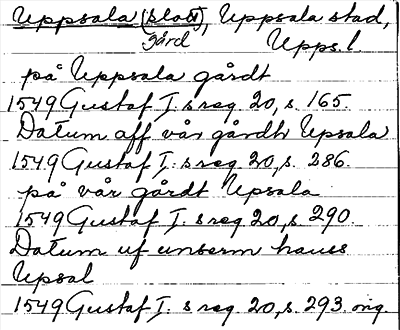 Uppsala (slott), Uppsala stad,
gård Upps. l
på Uppsala gårdt
1549 Gustaf I:s reg 20, s. 165.
Datum aff vår gårdh Upsala
1549 Gustaf I:s reg 20, s. 286.
på vår gårdt Upsala
1549 Gustaf I:s reg 20, s 290.
Datum uf unserm haues
Upsal
1549 Gustaf I:s reg 20, s. 293. orig.